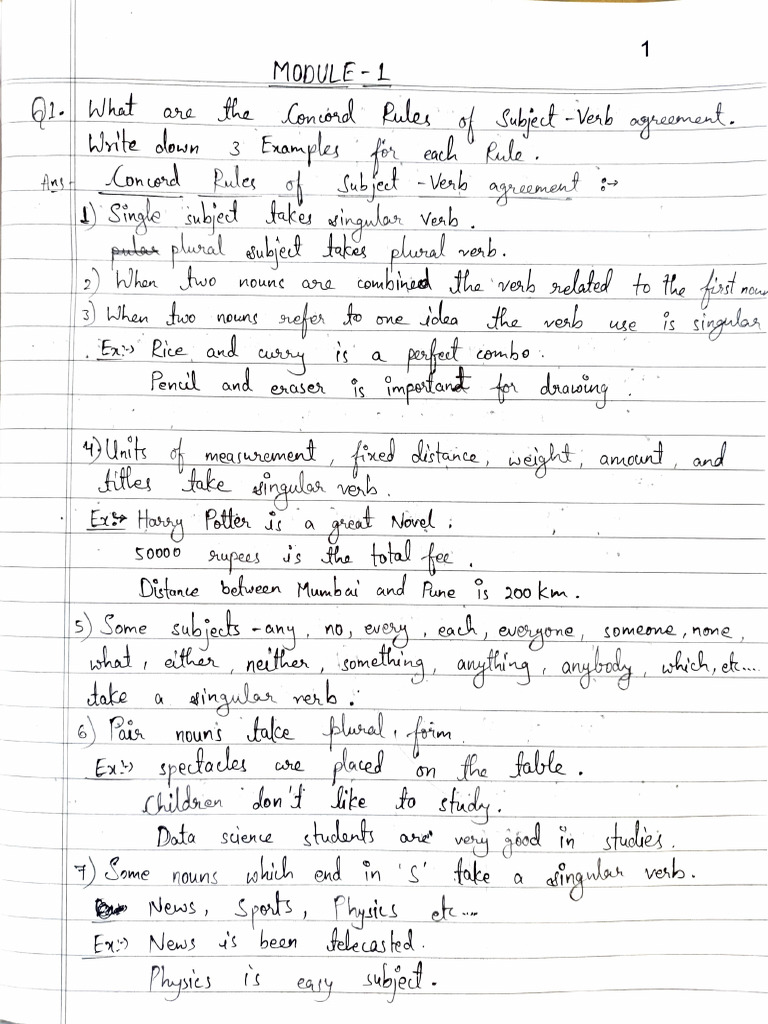 1
MODULE - 1
Q1. What are the Concord Rules of Subject-Verb agreement.
Write down 3 Examples for each Rule.
Ans - Concord Rules of Subject - Verb agreement :→
1) Single subject takes singular verb.
plural subject takes plural verb.
2) When two nouns are combined the verb related to the first noun
3) When two nouns refer to one idea the verb use is singular
Ex:→ Rice and curry is a perfect combo.
Pencil and eraser is important for drawing.
4) Units of measurement, fixed distance, weight, amount, and
titles take singular verb.
Ex:→ Harry Potter is a great Novel.
50000 rupees is the total fee.
Distance between Mumbai and Pune is 200 km.
5) Some subjects - any, no, every, each, everyone, someone, none,
what, either, neither, something, anything, anybody, which, etc....
take a singular verb.
6) Pair nouns take plural form
Ex:→ spectacles are placed on the table.
Children don't like to study.
Data science students are very good in studies.
7) Some nouns which end in 's' take a singular verb.
News, Sports, Physics etc....
Ex:→ News is been telecasted.
Physics is easy subject.